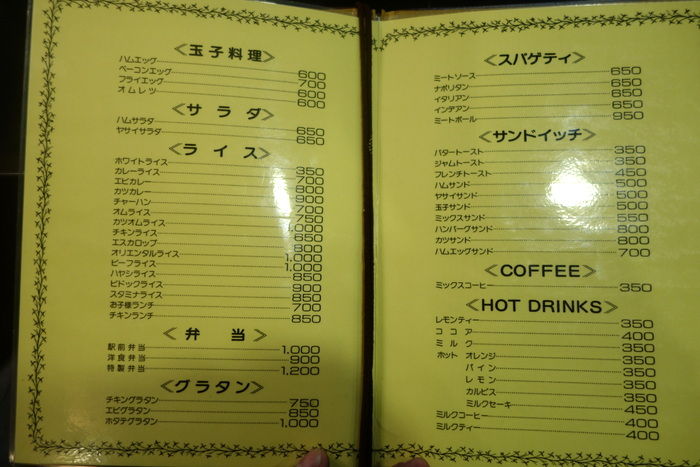 <玉子料理>
ハムエッグ 600
ベーコンエッグ 700
フライエッグ 600
オムレツ 600
<サラダ>
ハムサラダ 650
ヤサイサラダ 650
<ライス>
ホワイトライス 350
カレーライス 700
エビカレー 800
カツカレー 900
チャーハン 700
オムライス 750
カツオムライス 1,000
チキンライス 650
エスカロップ 800
オリエンタルライス 1,000
ビーフライス 1,000
ハヤシライス 850
ピドックライス 900
スタミナライス 850
お子様ランチ 700
チキンランチ 850
<弁当>
駅前弁当 1,000
洋食弁当 900
特製弁当 1,200
<グラタン>
チキングラタン 750
エビグラタン 850
ホタテグラタン 1,000
<スパゲティ>
ミートソース 650
ナポリタン 650
イタリアン 650
インデアン 650
ミートボール 950
<サンドイッチ>
バタートースト 350
ジャムトースト 350
フレンチトースト 450
ハムサンド 500
ヤサイサンド 500
玉子サンド 500
ミックスサンド 550
ハンバーグサンド 800
カツサンド 800
ハムエッグサンド 700
<COFFEE>
ミックスコーヒー 350
<HOT DRINKS>
レモンティー 350
ココア 400
ミルク 350
ホット オレンジ 350
パイン 350
レモン 350
カルピス 350
ミルクセーキ 450
ミルクコーヒー 400
ミルクティー 400